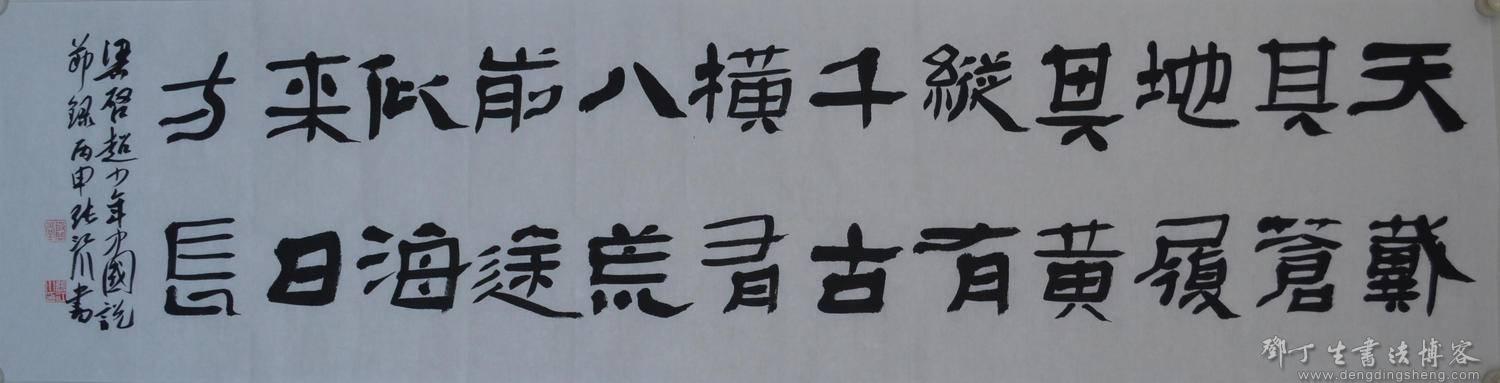 天戴
其蒼
地履
其黄
縱有
千古
横有
八荒
前途
似海
来日
方長
梁啓超少年中國説
節録丙申張江川書
鄧丁生書法博客
www.dengdingsheng.com